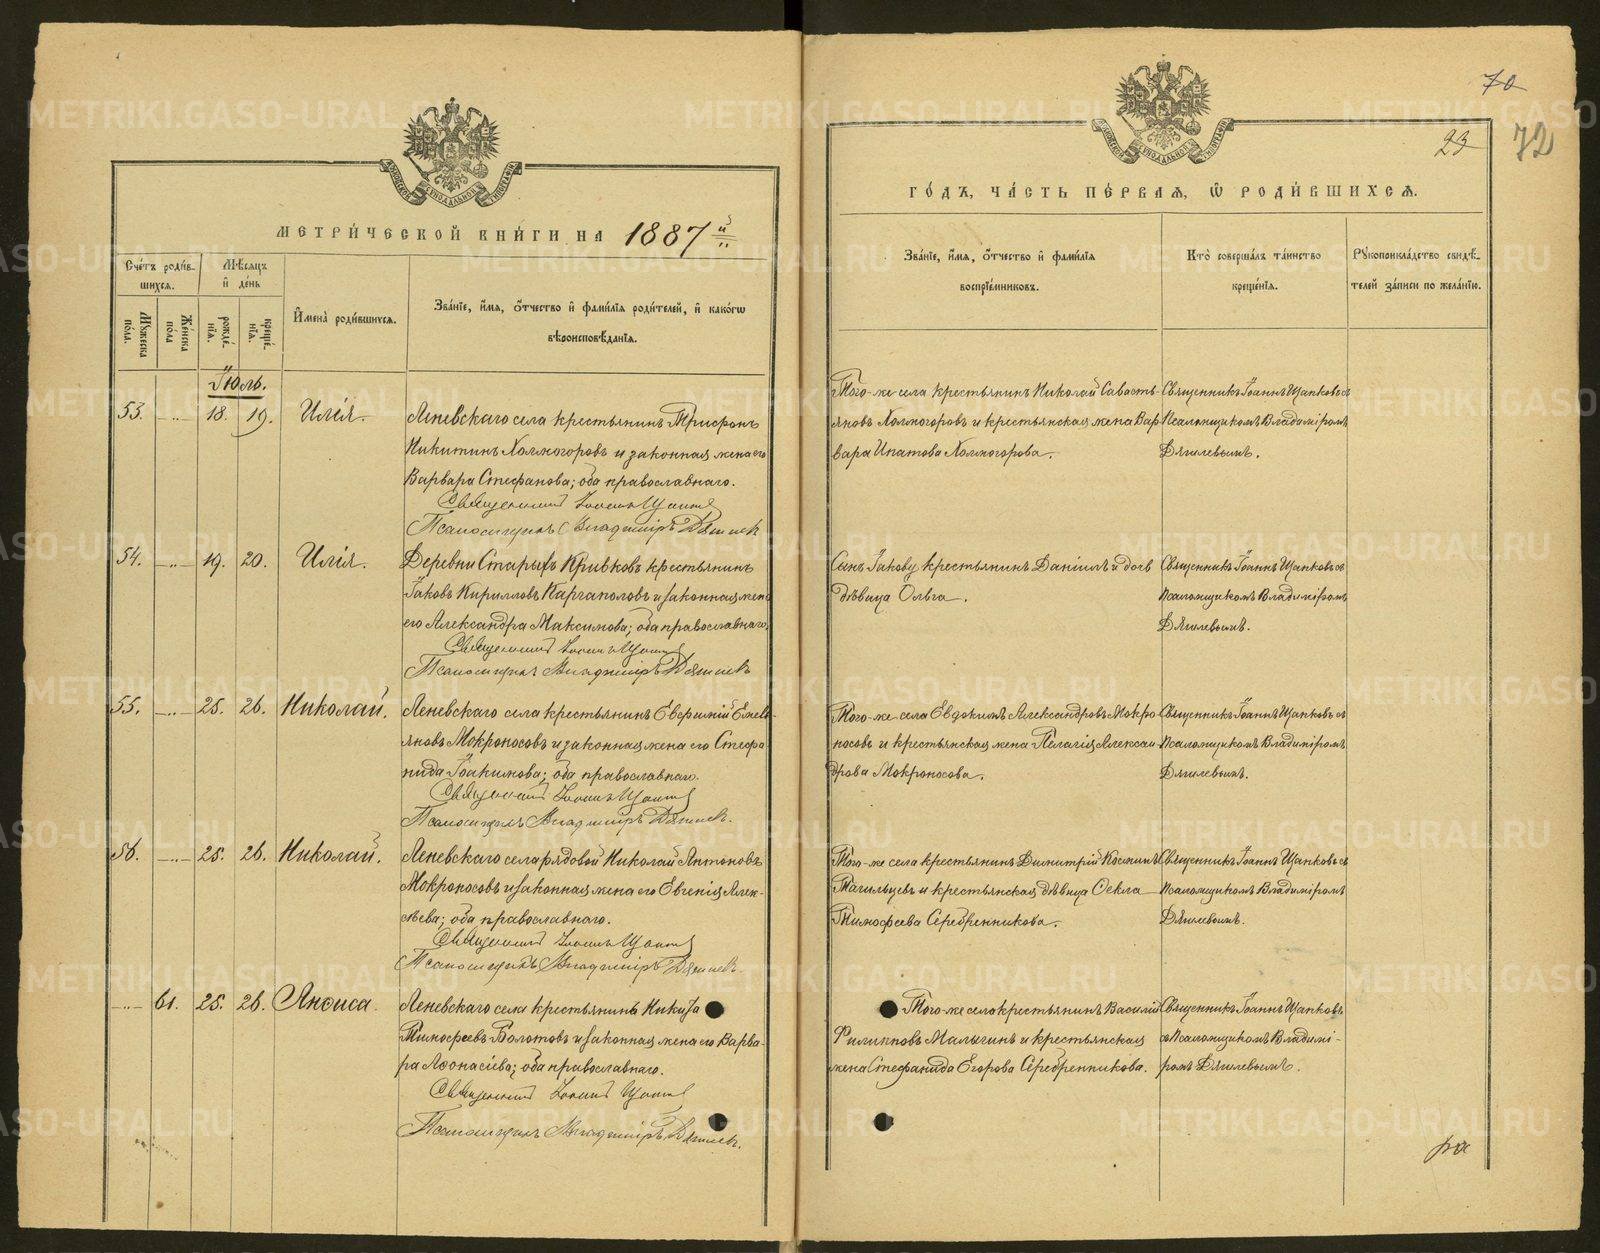 МЕТРИ́ЧЕСКОЙ КНИ́ГИ НА 1887 й
Сче́тъ роди́в-
шихсѧ.
Мѣ́сѧцъ
и҆ де́нь
Мꙋ́жеска
по́ла.
Же́нска
по́ла
рожде́-
нїѧ.
креще́-
нїѧ.
И҆мена̀ роди́вшихсѧ.
Зва́нїе, и҆́мѧ, ѻ҆́тчество и҆ фами́лїѧ роди́телей, и҆ како́гѡ
вѣроисповѣ́данїѧ.
Іюль.
53. —"— 18. 19. Илія.
Леневскаго села крестьянинъ Трифонъ
Никитинъ Холмогоровъ и законная жена его
Варвара Стефанова; оба православнаго.
Священникъ Іоаннъ Щапковъ
Псаломщикъ Владиміръ Дягилевъ
54. —"— 19. 20. Илія.
Деревни Старыхъ Кривковъ крестьянинъ
Іаковъ Кирилловъ Каргаполовъ и законная жена
его Александра Максимова; оба православнаго.
Священникъ Іоаннъ Щапковъ
Псаломщикъ Владиміръ Дягилевъ
55. —"— 25. 26. Николай.
Леневскаго села крестьянинъ
яновъ Мокроносовъ и законная жена его Стефа
нида Іоакимова; оба православнаго.
Священникъ Іоаннъ Щапковъ
Псаломщикъ Владиміръ Дягилевъ.
56. —"— 25. 26. Николай.
Леневскаго села рядовой Николай Антоновъ
Мокроносовъ и законная жена его Евгенія Алек-
сѣева; оба православнаго.
Священникъ Іоаннъ Щапковъ
Псаломщикъ Владиміръ Дягилевъ.
—"— 61. 25. 26. Анѳиса
Леневскаго села крестьянинъ Никита
Тимофеевъ Болотовъ и законная жена его Варва-
ра Аѳонасіева; оба православнаго.
Священникъ Іоаннъ Щапковъ
Псаломщикъ Владиміръ Дягилевъ.
70
23
72
ГО́ДЪ, ЧА́СТЬ ПЕ́РВАѦ, Ѡ҆ РОДИ́ВШИХСѦ.
Зва́нїе, и҆́мѧ, ѻ҆́тчество и҆ фами́лїѧ
воспрїе́мниковъ.
Кто̀ соверша́лъ та́инство
креще́нїѧ.
Рꙋкоприкла́дство свидѣ́-
телей за́писи по жела́нїю.
Того-же села крестьянинъ Николай Савасть-
яновъ Холмогоровъ и крестьянская жена Вар
вара Ипатова Холмогорова.
Священникъ Іоаннъ Щапковъ съ
Псаломщикомъ Владиміромъ
Дягилевымъ.
Сынъ Іакову крестьянинъ Даніилъ и дочь
дѣвица Ольга.
Священникъ Іоаннъ Щапковъ съ
псаломщикомъ Владиміромъ
Дягилевымъ.
Того-же села Евдокимъ Александровъ Мокро
носовъ и крестьянская жена Пелагія Алексан
дрова Мокроносова.
Священникъ Іоаннъ Щапковъ съ
псаломщикомъ Владиміромъ
Дягилевымъ.
Того-же села крестьянинъ Димитрій Косминъ
Тагильцевъ и крестьянская дѣвица Ѳекла
Тимофеева Серебренникова.
Священникъ Іоаннъ Щапковъ съ
псаломщикомъ Владиміромъ
Дягилевымъ.
Того-же село крестьянинъ Василій
Филипповъ Малыгинъ и крестьянская
жена Стефанида Егорова Серебренникова.
Священникъ Іоаннъ Щапковъ
съ Псаломщикомъ Владимі-
ромъ Дягилевымъ.
METRIKI.GASO-URAL.RU